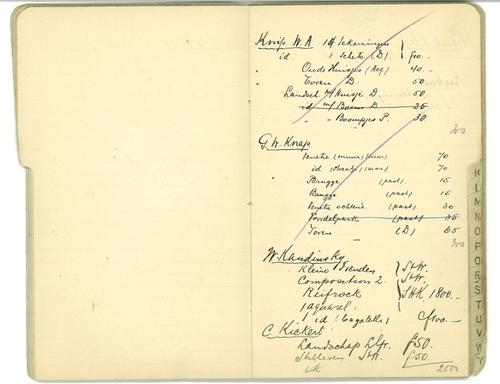 Knip W.A 14 tekeningen
id 1 schets (D.) f50.-
Oude Huisjes (Aq) 40.-
Toren D. 50.
Landsch. m/ Huisje D. 50.
id m/ Boom D. 25
" " Boompjes P. 30
200
G.W. Knap
Venetie (muur) (was) 70
id (was) 70
Brugge (past) 15
Brugge (past) 15
Venetie ochtend (past) 30
Vondelpark (past) 35
Toren (D) 65
W. Kandinsky
Kleine Freuden St.W.
Composition 2. St.W.
Reifrock 1800.-
1 aquarel
id (bagatelle) f100.-
C. Kickert
Landschap f50.
Stilleven St.W. f50.
2500
K
L
M
N
O
P
Q
R
S
T
U
V
W
Y